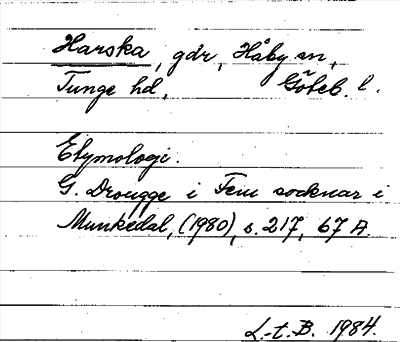 Harska, gdr, Håby sn,
Tunge hd, Göteb. l.
Etymologi.
G. Drougge i Fem socknar i
Munkedal, (1980), s. 217, 67 A.
L.-t. B. 1984.